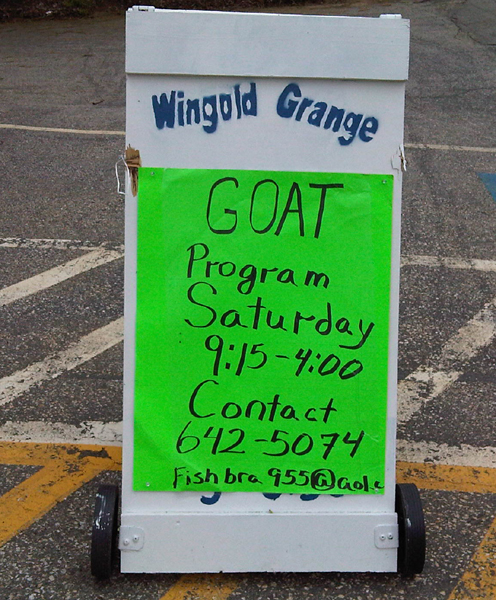 Wingold Grange
GOAT
Program
Saturday
9:15-4:00
Contact
642-5074
Fishbra955@aol.c